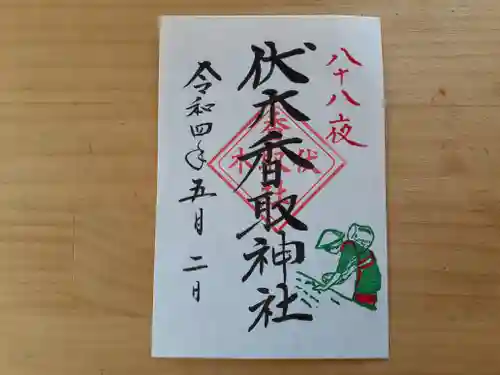 八十八夜
伏木香取神社
令和四年五月二日